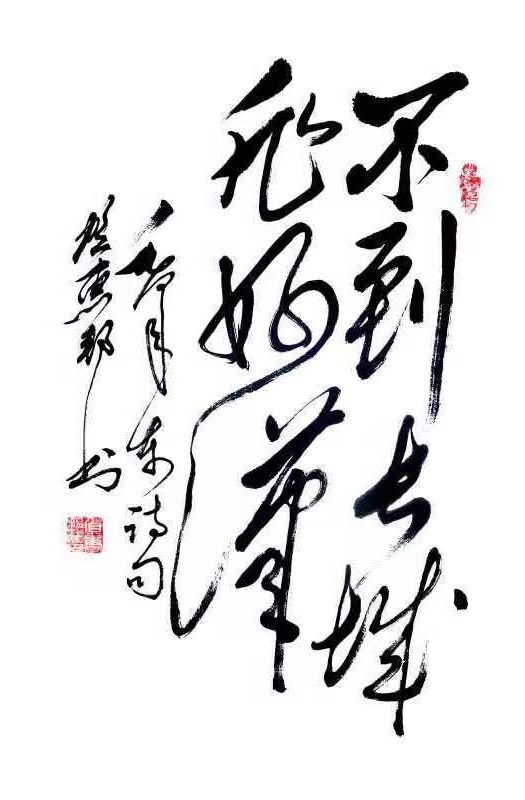 不到长城
非好漢
毛泽东诗句
惠邦书